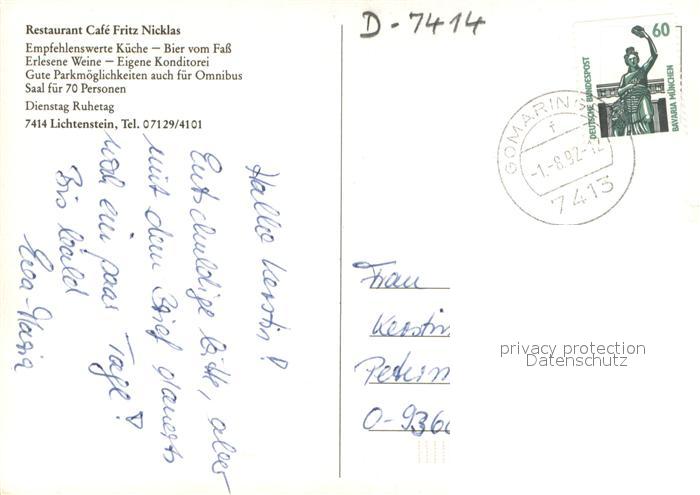 D-7414
Restaurant Café Fritz Nicklas
Empfehlenswerte Küche – Bier vom Faß
Erlesene Weine – Eigene Konditorei
Gute Parkmöglichkeiten auch für Omnibus
Saal für 70 Personen
Dienstag Ruhetag
7414 Lichtenstein, Tel. 07129/4101
Hallo Kerstin!
Entschuldige bitte, aber
mit dem Brief dauerts
noch ein paar Tage!
Bis bald
Eva-Maria
60
DEUTSCHE BUNDESPOST
BAVARIA MÜNCHEN
GOMARING
f
-1.-8.92-12
7413
Frau
Kerstin
Peterm
O-936
privacy protection
Datenschutz